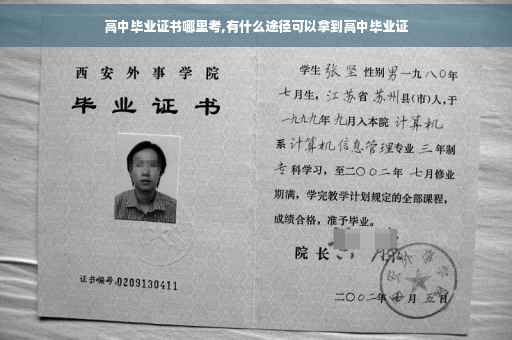 高中毕业证书哪里考,有什么途径可以拿到高中毕业证
西安外事学院
毕业证书
证书编号:0209130411
学生 张坚 性别 男 一九八〇年
七月生, 江苏省 苏州县(市)人,于
一九九九年 九月入本院 计算机
系 计算机信息管理专业 三 年制
专 科学习,至二〇〇二年 七月修业
期满,学完教学计划规定的全部课程,
成绩合格,准予毕业。
院长
二〇〇二年 月 五日